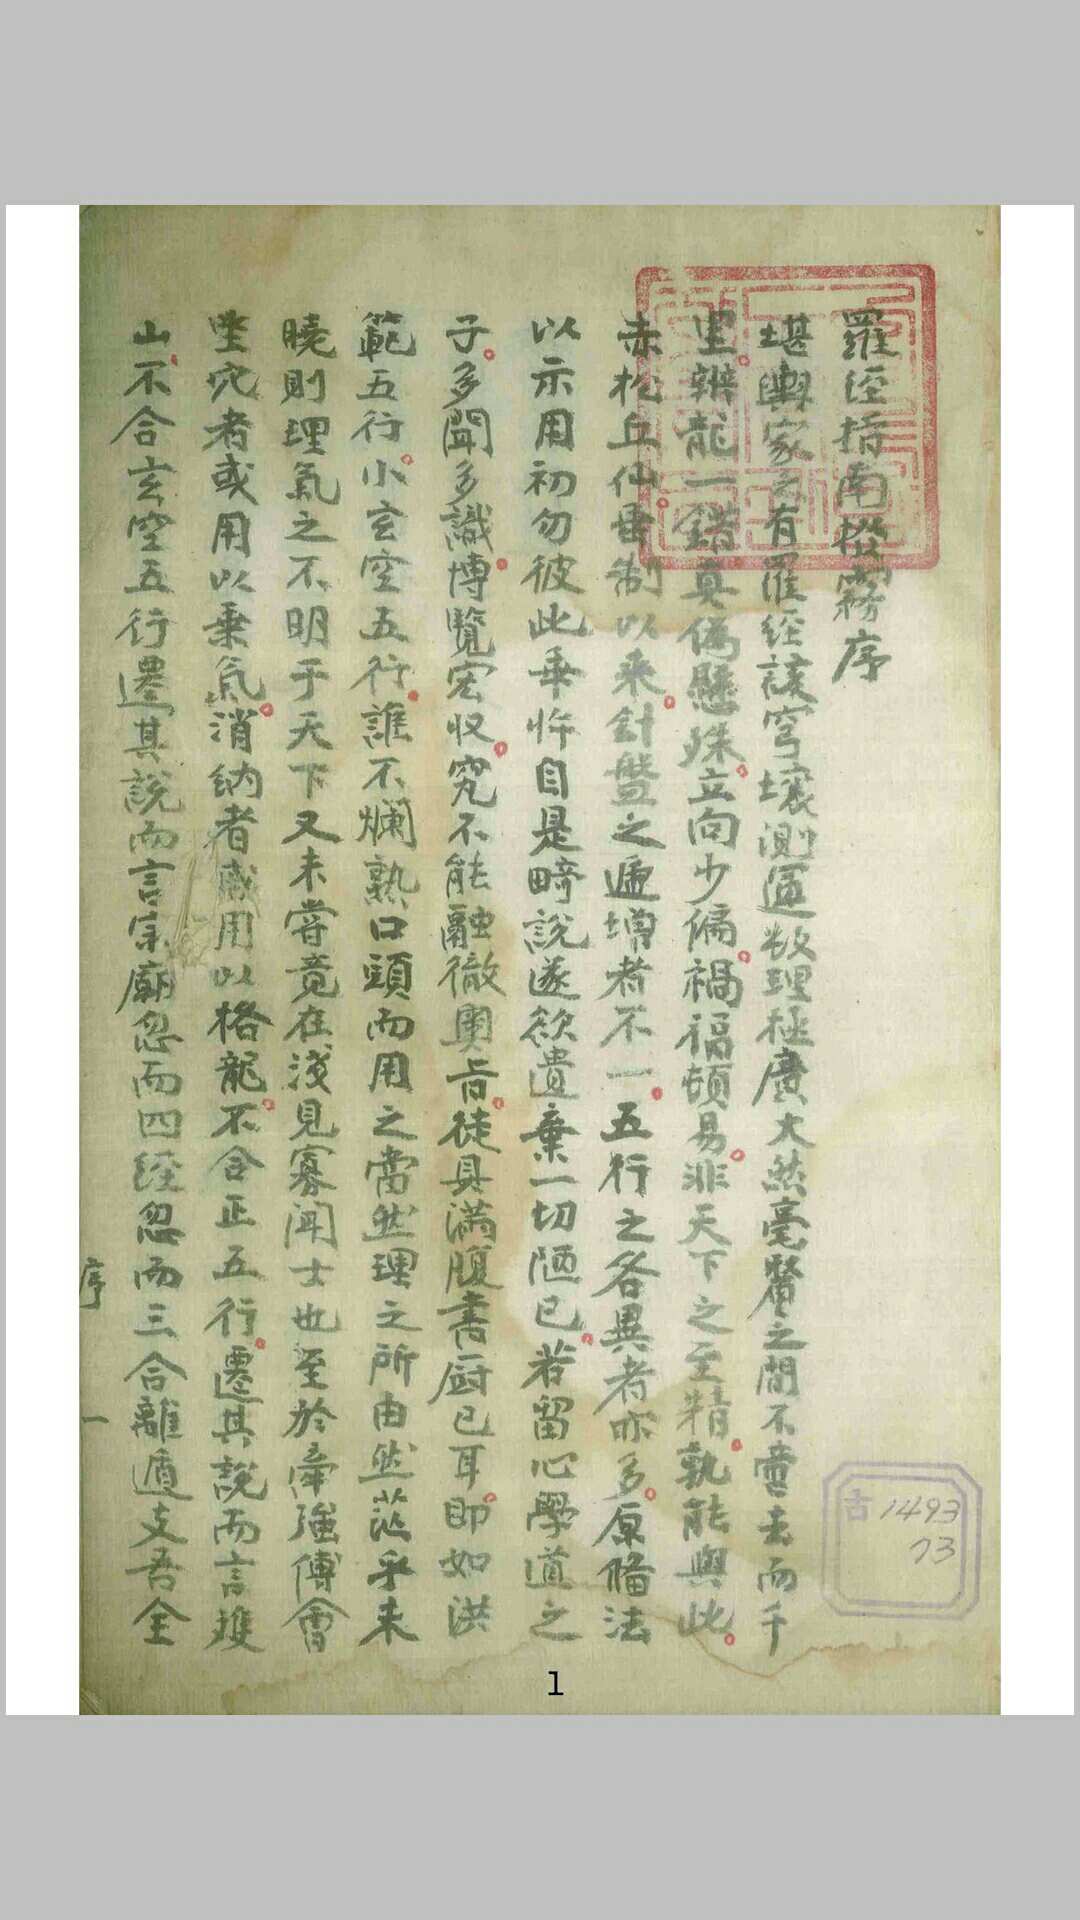 羅經指南撥霧序
堪輿家之有羅經該穹壤測運數理極廣大然毫釐之間不啻去而千
里辨龍一錯真偽懸殊立向少偏禍福頓易非天下之至精孰能與此
赤松丘仙畱制以來針盤之遞增者不一五行之各異者亦多原俻法
以示用初勿彼此乖忤自是畸說遂欲遺棄一切陋已若留心學道之
子多聞多識博覽宏収究不能融徹奧旨徒具滿腹書厨已耳即如洪
範五行小玄空五行誰不爛熟口頭而用之當然理之所由然茫乎未
曉則理氣之不明于天下又未嘗竟在淺見寡闻士也至於牽強傅會
坐穴者或用以乗氣消納者或用以格龍不合正五行遷其說而言雙
山不合玄空五行遷其說而言宗廟忽而四經忽而三合離遁支吾全
序
一
古 1493
73
1